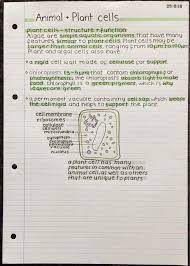 Animal + Plant cells
plant cells - structure + function
Algae are simple aquatic organisms that have many
features similar to plant cells. Plant cells may be
larger than animal cells, ranging from 10μm to 100μm
Plant and algal cells also have:
a rigid cell wall made of cellulose for support
chloroplasts that contain chlorophyll for
photosynthesis. the chloroplasts absorb light to make
food. Chlorophyll is a green pigment, which is why
leaves are green
a permanent vacuole containing cell sap which keeps
the cell rigid and helps to support the plant
cell membrane
ribosomes
cellulose
mitochondria
a plant cell has many
features in common with an
animal cell, as well as others
that are unique to plants